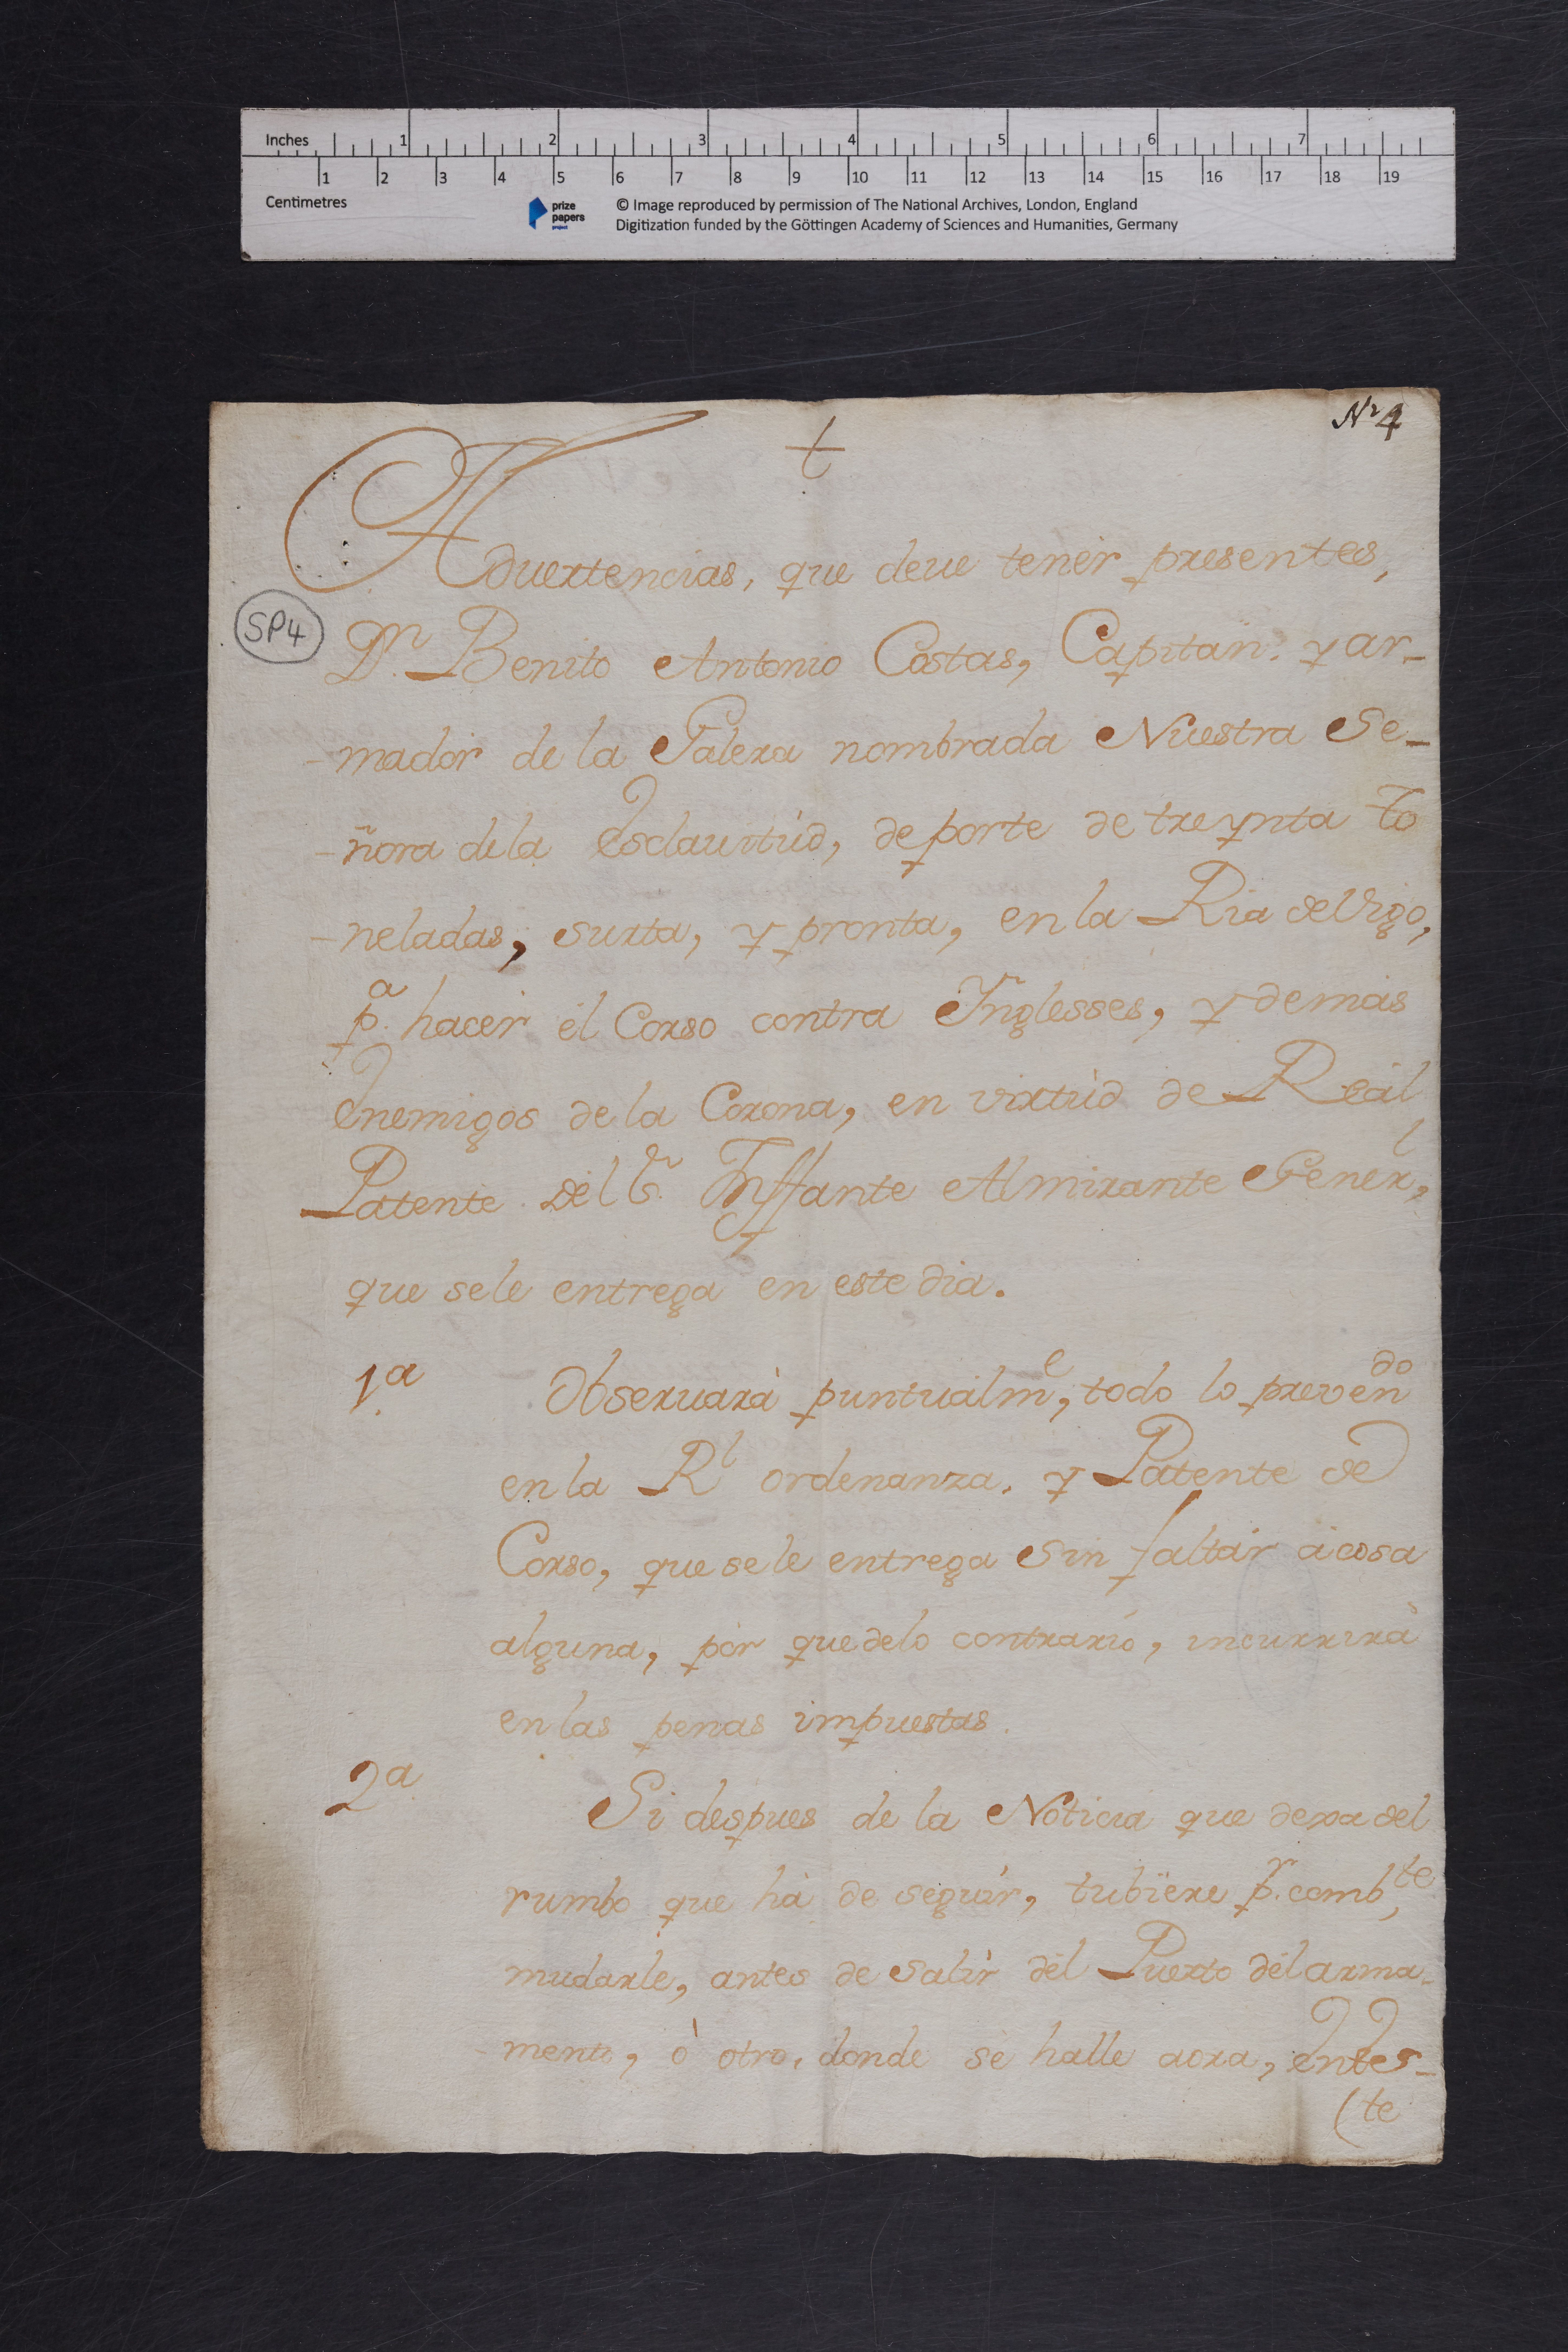 Inches 1 2 3 4 5 6 7
1 2 3 4 5 6 7 8 9 10 11 12 13 14 15 16 17 18 19
Centimetres
prize papers project
© Image reproduced by permission of The National Archives, London, England
Digitization funded by the Göttingen Academy of Sciences and Humanities, Germany
Nº 4
Aduertencias, que deue tenèr presentes,
SP4
Dn. Benito Antonio Costas, Capitan. y ar-
-madòr de la Galera nombrada Nuestra Se-
-ñora dela Esclauitùd, de porte de treynta to
-neladas, surta, y pronta, en la Ria de Vigo,
pa. hacèr èl Corso contra Inglesses, y demàs
Enemigos de la Corona, en virtùd de Reàl
Patente del Sr. Inffante Almirante Generl,
que sele entrega en este dia.
1a.
Obseruarà puntualme, todo lo prevendo
en la Rl ordenanza, y Patente de
Corso, que sele entrega sin faltàr àcosa
alguna, pòr que delo contrario, incurrirà
en las penas impuestas.
2a.
Si despues de la Noticia que dexa del
rumbo que hà de seguìr, tubiere pr. combte,
mudarle, antes de salìr dèl Puerto dèl arma-
-mento, ò otro, donde sè halle aora, èntes-
(te